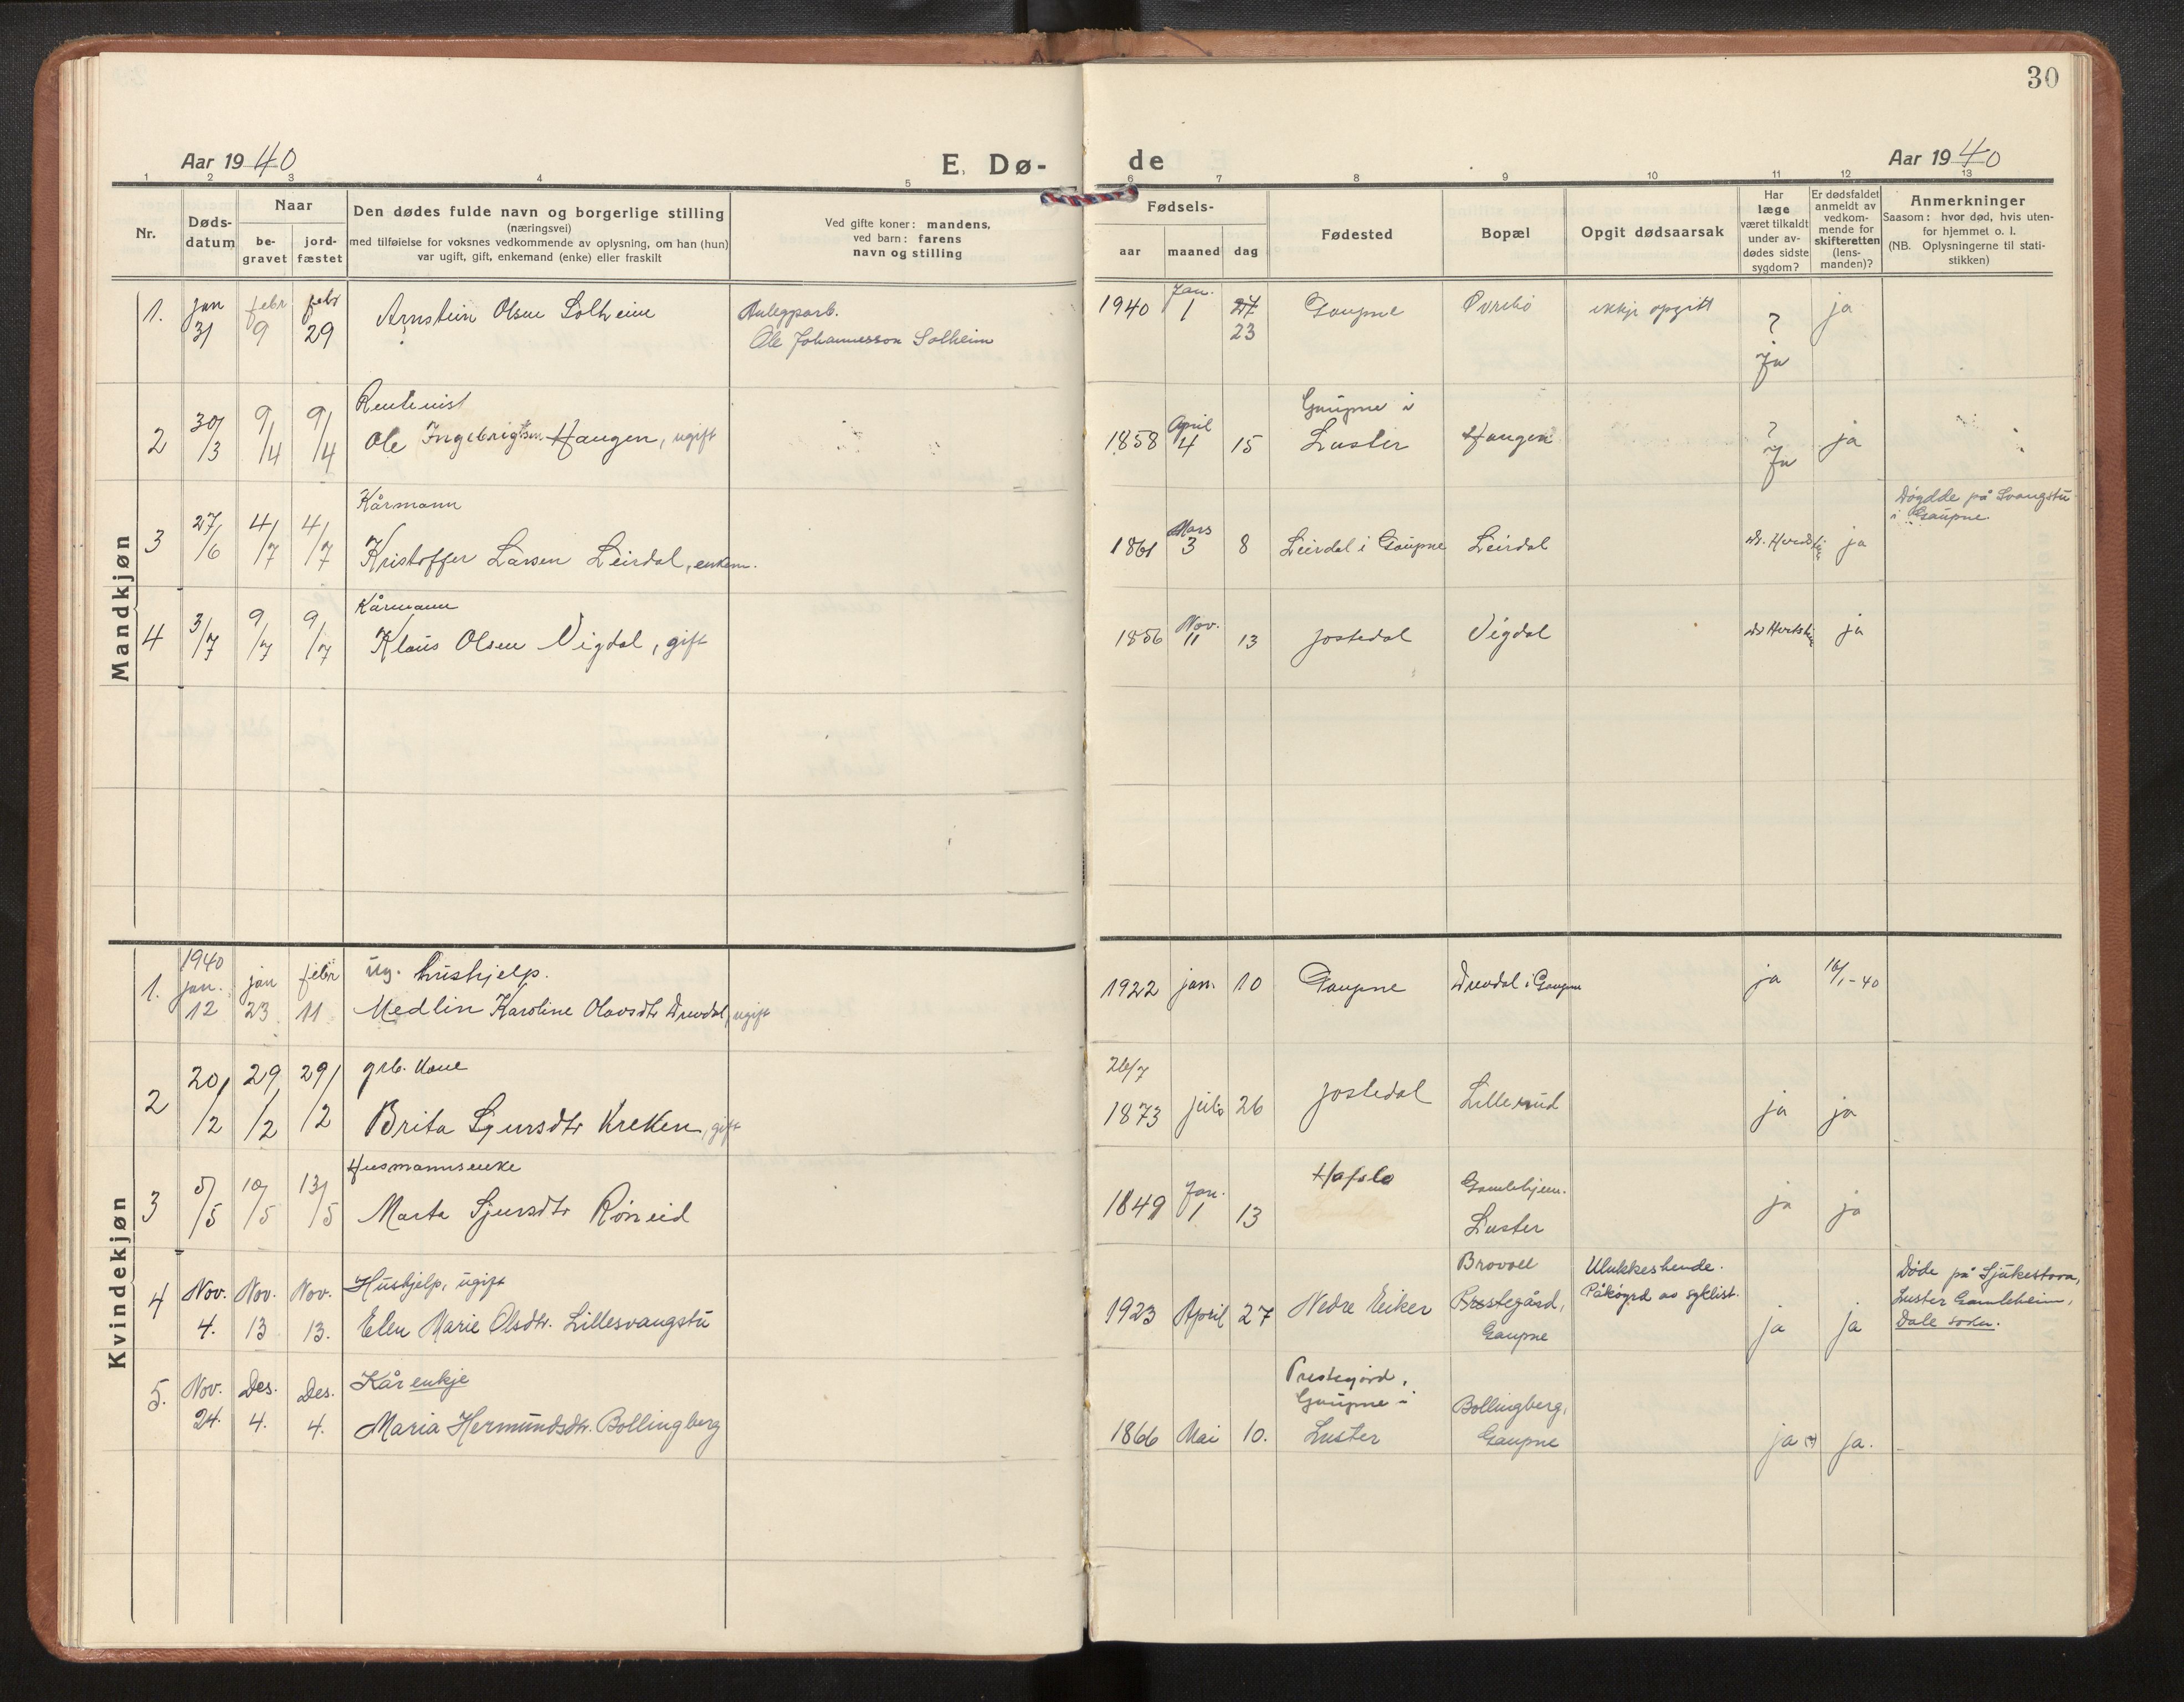 30
Aar 1940
E. Dø-
de
Aar 1940
1 2 3 4 5 6 7 8 9 10 11 12 13
Nr.
Døds-
datum
Naar
be-
gravet
jord-
fæstet
Den dødes fulde navn og borgerlige stilling
(næringsvei)
med tilføielse for voksnes vedkommende av oplysning, om han (hun)
var ugift, gift, enkemand (enke) eller fraskilt
Ved gifte koner: mandens,
ved barn: farens
navn og stilling
Fødsels-
aar maaned dag
Fødested
Bopæl
Opgit dødsaarsak
Har
læge
været tilkaldt
under av-
dødes sidste
sygdom?
Er dødsfaldet
anmeldt av
vedkom-
mende for
skifteretten
(lens-
manden)?
Anmerkninger
Saasom: hvor død, hvis uten-
for hjemmet o. l.
(NB. Oplysningerne til stati-
stikken)
Mandkjøn
1. jan 31 febr 9 febr 29
Arnstein Olsen Solheim
Anleggsarb.
Ole Johannesson Solheim
1940 Jan. 1 27 23 Gaupne Øvrebø ikkje opgitt ? Ja ja
Rentenist
2 30/3 9/4 9/4 Ole Ingebrigtsn. Haugen, ugift
1858 April 4 15 Gaupne i Luster Haugen ? Ja ja
Kårmann
3 27/6 4/7 4/7 Kristoffer Larsen Leirdal, enkem.
1861 Mars 3 8 Leirdal i Gaupne Leirdal Dr. ja
Døydde på Svangstu
i Gaupne.
Kårmann
4 3/7 9/7 9/7 Klaus Olsen Vigdal, gift
1856 Nov. 11 13 Jostedal Vigdal Dr ja
Kvindekjøn
1. 1940 jan. 12 jan 23 febr 11
ug. hushjelp.
Medlin Karoline Olavsdtr Drevdal, ugift
1922 jan. 10 Gaupne Drevdal i Gaupne ja 16/1-40
grb. kone
2 20/2 29/2 29/2 Brita Sjursdtr Kreken, gift
26/7
1873 juli 26 Jostedal Lillerud ja ja
Husmannsenke
3 5/5 10/5 13/5 Marta Sjursdtr Røneid
1849 Jan. 1 13 Hafslo Gamlehjem. Luster ja ja
Hushjelp, ugift
4 Nov. 4. Nov. 13 Nov. 13. Elen Marie Olsdtr. Lillesvangstu
1923 April 27 Nedre Eiker Brovoll Prestegård, Gaupne
Ulukkeshende.
Påkøyrd av syklist.
ja ja
Døde på Sjukestova,
Luster Gamleheim,
Dale sokn.
Kårenkje
5. Nov. 24. Des. 4. Des. 4. Maria Hermundsdtr. Bollingberg
1866 Mai 10. Prestegård, Gaupne i Luster Bollingberg, Gaupne ja (?) ja.